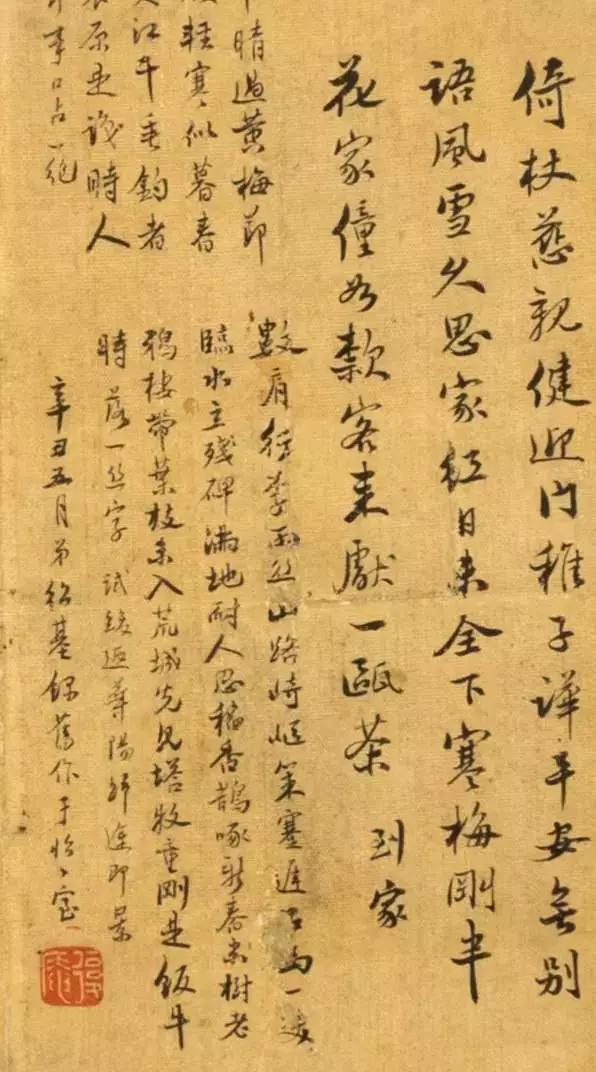 倚杖慈親健迎門稚子譁平安無別
語風雪久思家紅日未全下寒梅剛半
花家僮如款客來獻一甌茶 到家
晴過黃梅節
輕寒似暮春
江干垂釣者
原是識時人
事口占一絕
數肩行李雨丝山路崎嶇策蹇遲古一
臨水立殘碑滿地耐人思稻香鵲啄新舂米樹老
鴉棲帶葉枝未入荒城先見塔牧童剛是飯牛
時 落一丝字 試後返尋陽歸途即景
辛丑五月弟紹基錄舊作于怡怡室